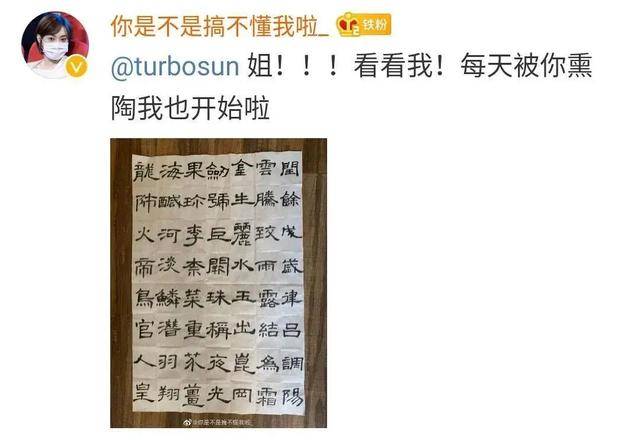 你是不是搞不懂我啦_ 铁粉 2
@turbosun 姐！！！看看我！每天被你熏
陶我也开始啦
閏餘成歲律呂調陽
雲騰致雨露結為霜
金生麗水玉出崑岡
劍號巨闕珠稱夜光
果珍李柰菜重芥薑
海鹹河淡鱗潛羽翔
龍師火帝鳥官人皇
@你是不是搞不懂我啦_